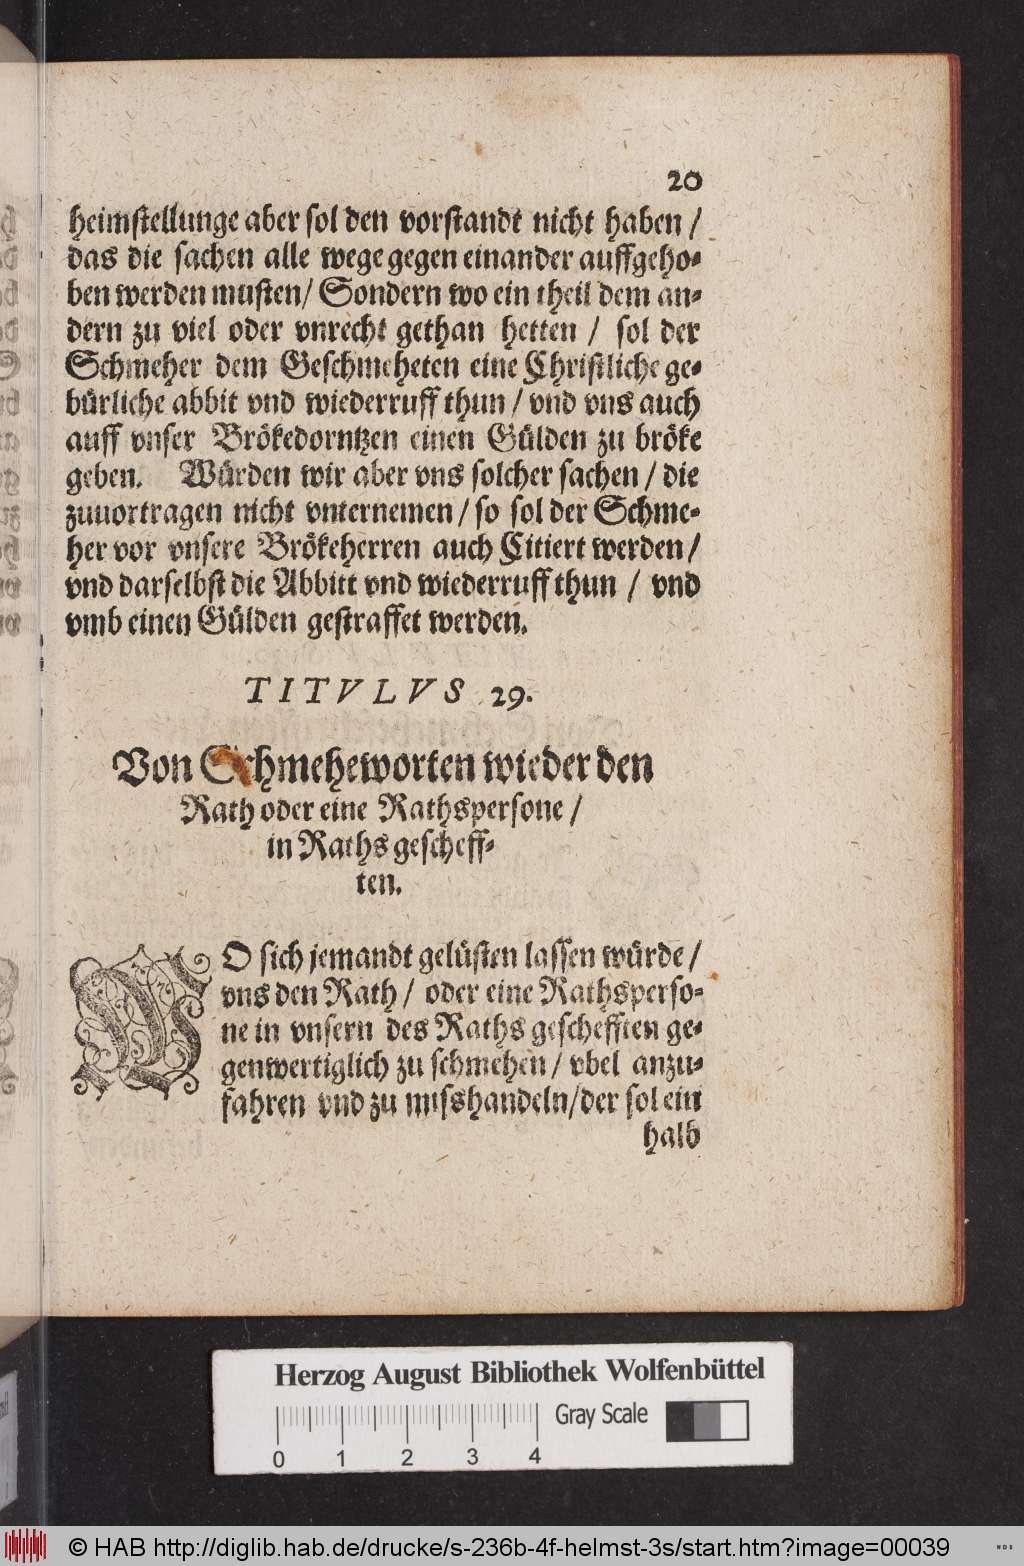 20
heimstellunge aber sol den vorstandt nicht haben /
das die sachen alle wege gegen einander auffgeho⸗
ben werden musten/ Sondern wo ein theil dem an⸗
dern zu viel oder vnrecht gethan hetten / sol der
Schmeher dem Geschmeheten eine Christliche ge⸗
bürliche abbit vnd wiederruff thun / vnd vns auch
auff vnser Brökedorntzen einen Gülden zu bröke
geben. Würden wir aber vns solcher sachen / die
zuuortragen nicht vnternemen / so sol der Schme⸗
her vor vnsere Brökeherren auch Citiert werden /
vnd darselbst die Abbitt vnd wiederruff thun / vnd
vmb einen Gülden gestraffet werden.
TITVLVS 29.
Von Schmeheworten wieder den
Rath oder eine Rathspersone /
in Raths gescheff⸗
ten.
WO sich jemandt gelüsten lassen würde /
vns den Rath / oder eine Rathsperso⸗
ne in vnsern des Raths geschefften ge⸗
genwertiglich zu schmehen / vbel anzu⸗
fahren vnd zu misshandeln/der sol ein
halb
Herzog August Bibliothek Wolfenbüttel
Gray Scale
0 1 2 3 4
© HAB http://diglib.hab.de/drucke/s-236b-4f-helmst-3s/start.htm?image=00039